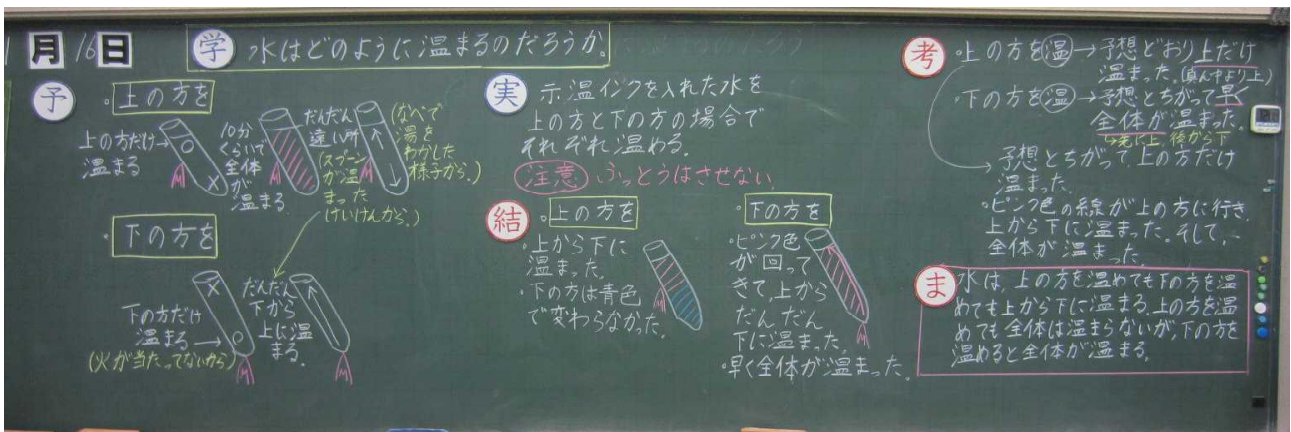 月16日
学 水はどのように温まるのだろうか。
予
・上の方を
上の方だけ→
温まる
10分
くらいで
全体
が
温まる
だんだん
遠い所
(スプーン
が温
まった
けいけんから。)
(なべで
湯を
わかした
様子から。)
・下の方を
下の方だけ
温まる→
(火が当たってないから)
だんだん
下から
上に温
まる。
実 示温インクを入れた水を
上の方と下の方の場合で
それぞれ温める。
注意 ふっとうはさせない
結
・上の方を
・上から下に
温まった。
・下の方は青色
で変わらなかった。
・下の方を
・ピンク色
が回って
きて、上から
だんだん
下に温まった。
・早く全体が温まった。
考 ・上の方を温→予想どおり上だけ
温まった。(真ん中より上)
・下の方を温→予想とちがって早く
全体が温まった。
↳先に上、後から下
→予想とちがって上の方だけ
温まった。
・ピンク色の線が上の方に行き、
上から下に温まった。そして、
全体が温まった。
ま 水は、上の方を温めても下の方を温
めても上から下に温まる。上の方を温
めても全体は温まらないが、下の方を
温めると全体が温まる。